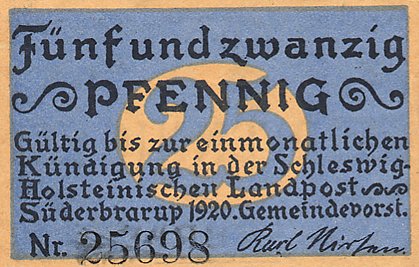 Fünfundzwanzig
PFENNIG
25
Gültig bis zur einmonatlichen
Kündigung in der Schleswig-
Holsteinischen Landpost
Süderbrarup 1920. Gemeindevorst.
Nr. 25698 Karl Nissen